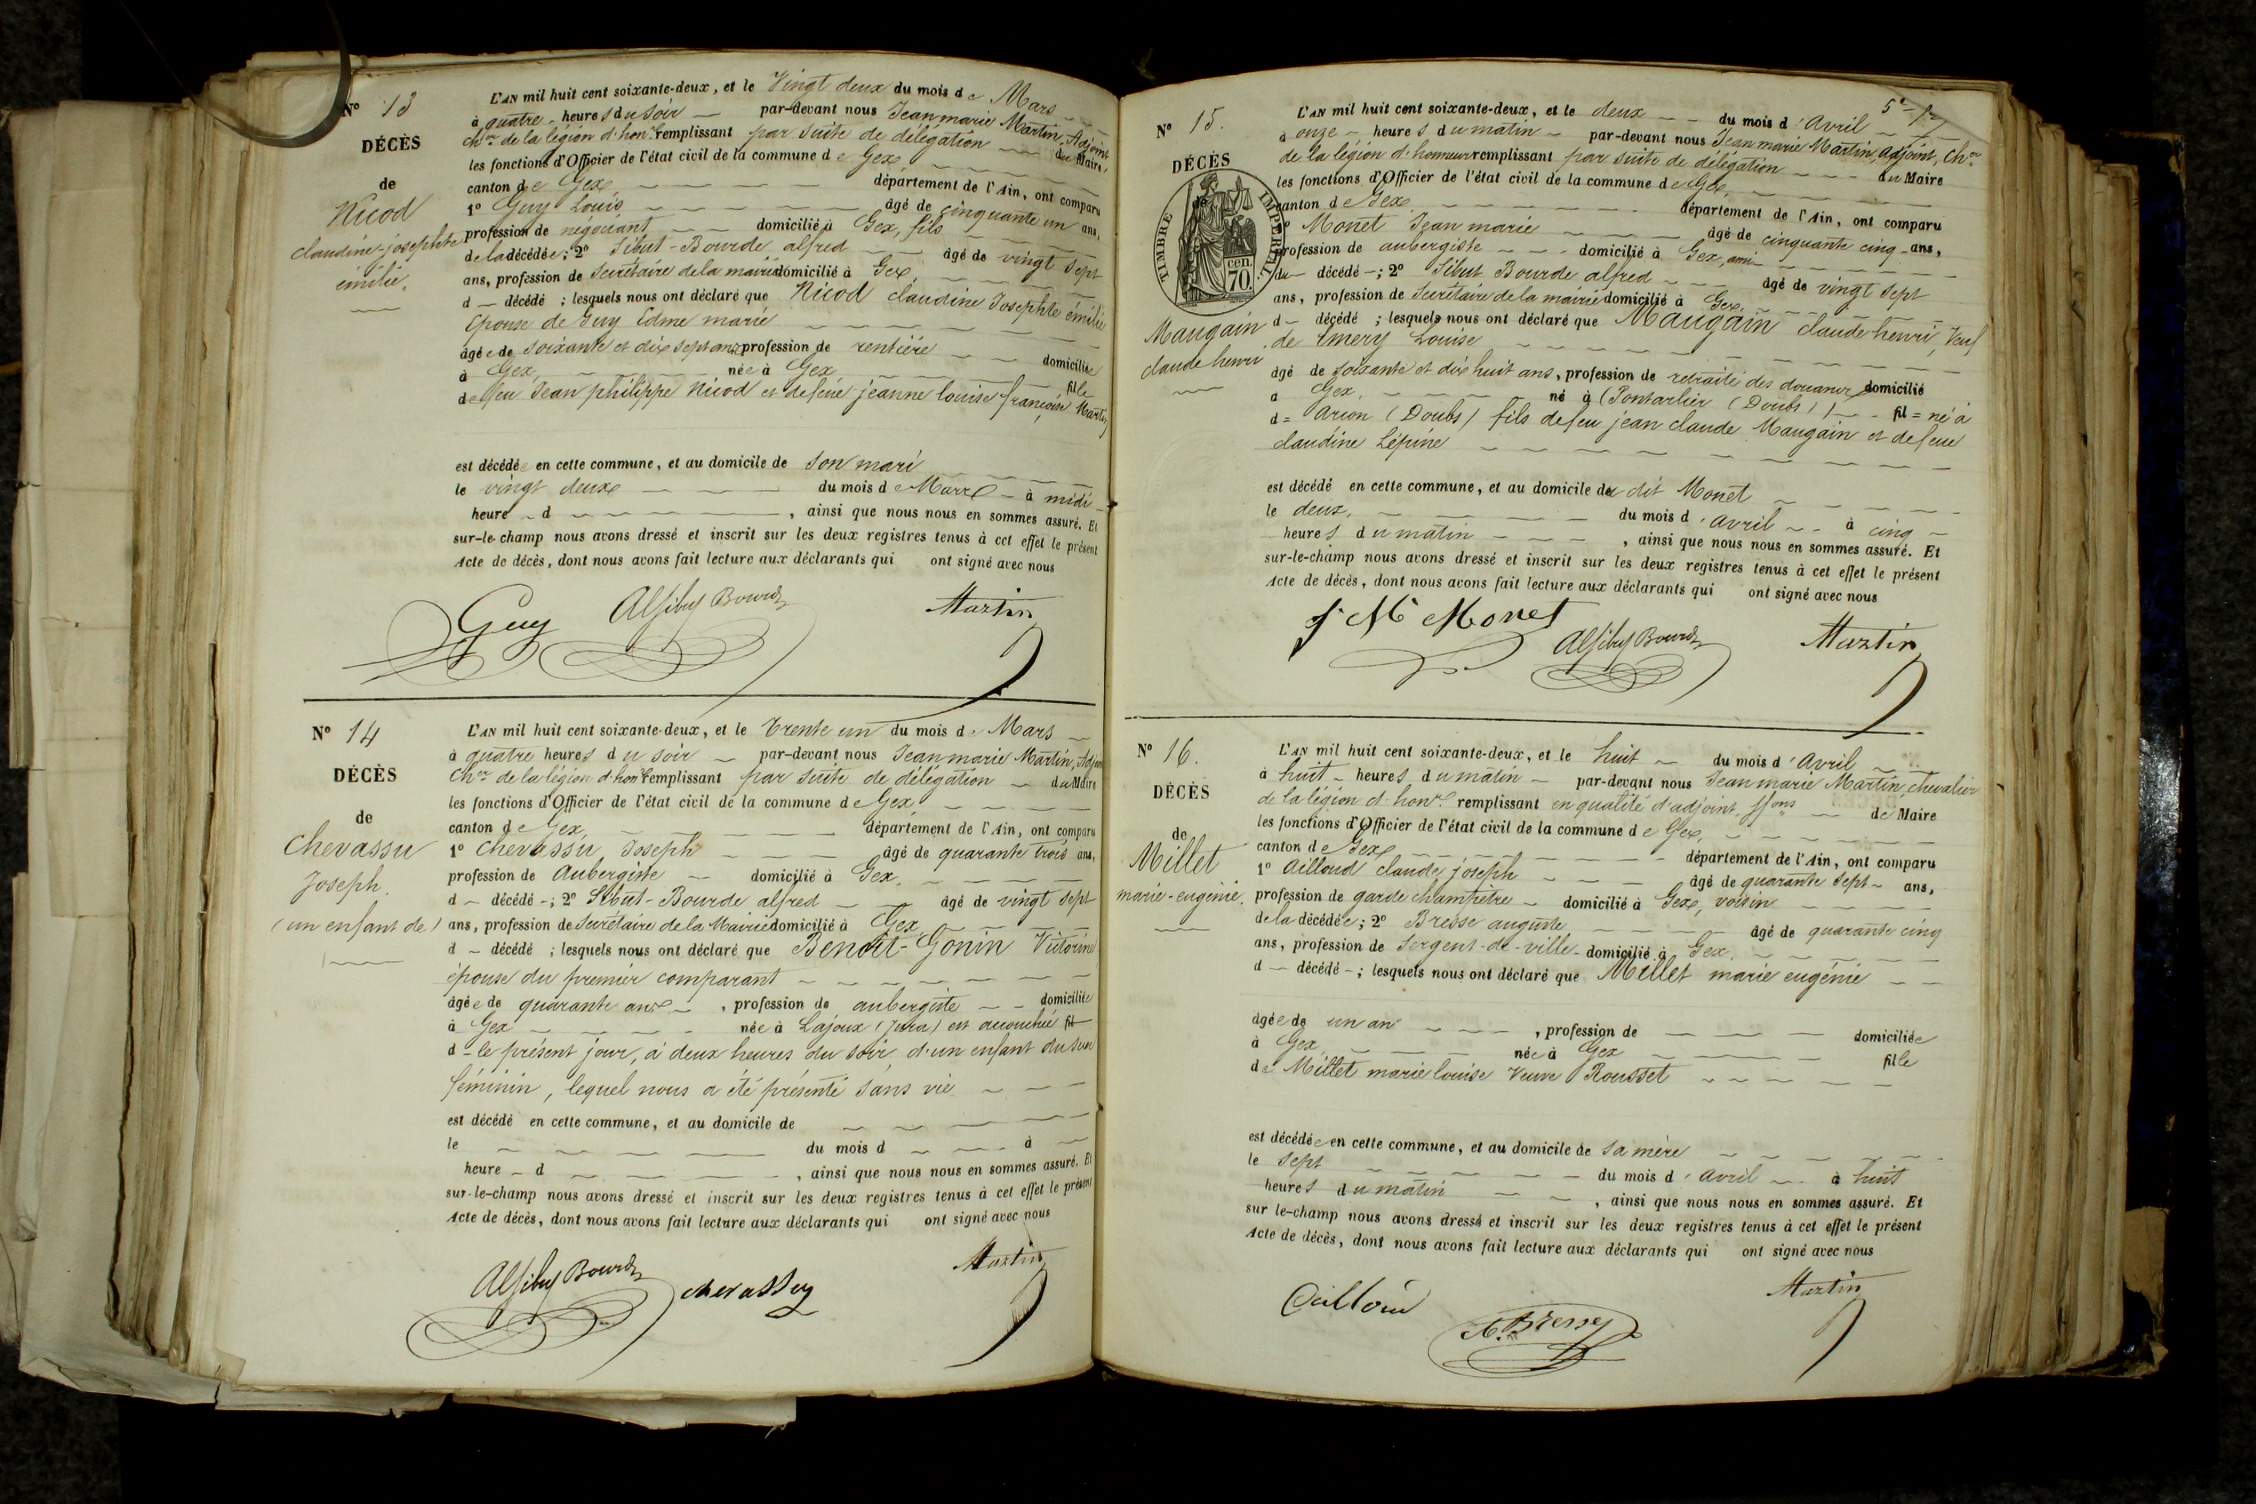 N° 13
DÉCÈS
de
Nicod
claudine-josephte
émilie.
L'AN mil huit cent soixante-deux, et le Vingt deux du mois de Mars
à quatre heures du soir par-devant nous Jean marie Martin, Adjoint
Cher de la légion d'honr remplissant par suite de délégation du Maire,
les fonctions d'Officier de l'état civil de la commune de Gex
canton de Gex département de l'Ain, ont comparu
1° Guy Louis âgé de cinquante un ans,
profession de négociant domicilié à Gex, fils
de la décédée; 2° Sibut-Bourde alfred âgé de vingt sept
ans, profession de Secrétaire de la mairie domicilié à Gex,
d décédé ; lesquels nous ont déclaré que Nicod claudine Josephte émilie
Epouse de Guy Edme marie
âgée de soixante et dix sept ans profession de rentière domiciliée
à Gex, née à Gex, fille
de feu Jean philippe Nicod et de feue jeanne louise françoise Martin
est décédée en cette commune, et au domicile de son mari
le vingt deux du mois de Mars à midi
heure d , ainsi que nous nous en sommes assuré. Et
sur-le-champ nous avons dressé et inscrit sur les deux registres tenus à cet effet le présent
Acte de décès, dont nous avons fait lecture aux déclarants qui ont signé avec nous
Guy Alf Sibut Bourde Martin
N° 14
DÉCÈS
de
Chevassu
Joseph.
(un enfant de)
L'AN mil huit cent soixante-deux, et le trente un du mois de Mars
à quatre heures du soir par-devant nous Jean marie Martin, Adjoint
Cher de la légion d'honr remplissant par suite de délégation du Maire
les fonctions d'Officier de l'état civil de la commune de Gex
canton de Gex, département de l'Ain, ont comparu
1° Chevassu Joseph âgé de quarante trois ans,
profession de Aubergiste domicilié à Gex,
d décédé ; 2° Sibut-Bourde alfred âgé de vingt sept
ans, profession de Secrétaire de la Mairie domicilié à Gex
d décédé ; lesquels nous ont déclaré que Benoit-Gonin Victorine
épouse du premier comparant
âgée de quarante ans , profession de aubergiste domiciliée
à Gex née à Lajoux (Jura) est accouchée fil
d le présent jour, à deux heures du soir d'un enfant du sexe
féminin, lequel nous a été présenté sans vie
est décédé en cette commune, et au domicile de
le du mois d à
heure d , ainsi que nous nous en sommes assuré. Et
sur-le-champ nous avons dressé et inscrit sur les deux registres tenus à cet effet le présent
Acte de décès, dont nous avons fait lecture aux déclarants qui ont signé avec nous
Alf Sibut Bourde chevassu Martin
5e
N° 15.
DÉCÈS
TIMBRE IMPÉRIAL
cen.
70.
Maugain
claude henri
L'AN mil huit cent soixante-deux, et le deux du mois d'Avril
à onze heures du matin par-devant nous Jean marie Martin, adjoint, Cher
de la légion d'honneur remplissant par suite de délégation du Maire
les fonctions d'Officier de l'état civil de la commune de Gex,
canton de Gex département de l'Ain, ont comparu
1° Monet Jean marie âgé de cinquante cinq ans,
profession de aubergiste domicilié à Gex, ami
du décédé ; 2° Sibut Bourde alfred âgé de vingt sept
ans, profession de Secrétaire de la mairie domicilié à Gex,
d décédé ; lesquels nous ont déclaré que Maugain claude-henri, Veuf
de Emery Louise
âgé de soixante et dix huit ans, profession de retraité des douanes domicilié
à Gex, né à (Pontarlier (Doubs)) fil = né à
d = Arcon (Doubs) fils de feu jean claude Maugain et de feue
claudine Lépine
est décédé en cette commune, et au domicile du dit Monet
le deux, du mois d'avril à cinq
heures du matin , ainsi que nous nous en sommes assuré. Et
sur-le-champ nous avons dressé et inscrit sur les deux registres tenus à cet effet le présent
Acte de décès, dont nous avons fait lecture aux déclarants qui ont signé avec nous
J M Monet Alf Sibut Bourde Martin
N° 16.
DÉCÈS
de
Millet
marie-eugénie.
L'AN mil huit cent soixante-deux, et le huit du mois d'Avril
à huit heures du matin par-devant nous Jean marie Martin, chevalier
de la légion d'honr remplissant en qualité d'adjoint ffons de Maire
les fonctions d'Officier de l'état civil de la commune de Gex,
canton de Gex département de l'Ain, ont comparu
1° Ailloud claude joseph âgé de quarante sept ans,
profession de garde champêtre domicilié à Gex, voisin
de la décédée; 2° Bresse auguste âgé de quarante cinq
ans, profession de Sergent-de-ville domicilié à Gex.
d décédé ; lesquels nous ont déclaré que Millet marie eugénie
âgée de un an , profession de domiciliée
à Gex née à Gex fille
de Millet marie louise Veuve Rousset
est décédée en cette commune, et au domicile de sa mère
le sept du mois d'avril à huit
heures du matin , ainsi que nous nous en sommes assuré. Et
sur le-champ nous avons dressé et inscrit sur les deux registres tenus à cet effet le présent
Acte de décès, dont nous avons fait lecture aux déclarants qui ont signé avec nous
Martin
A. Bresse